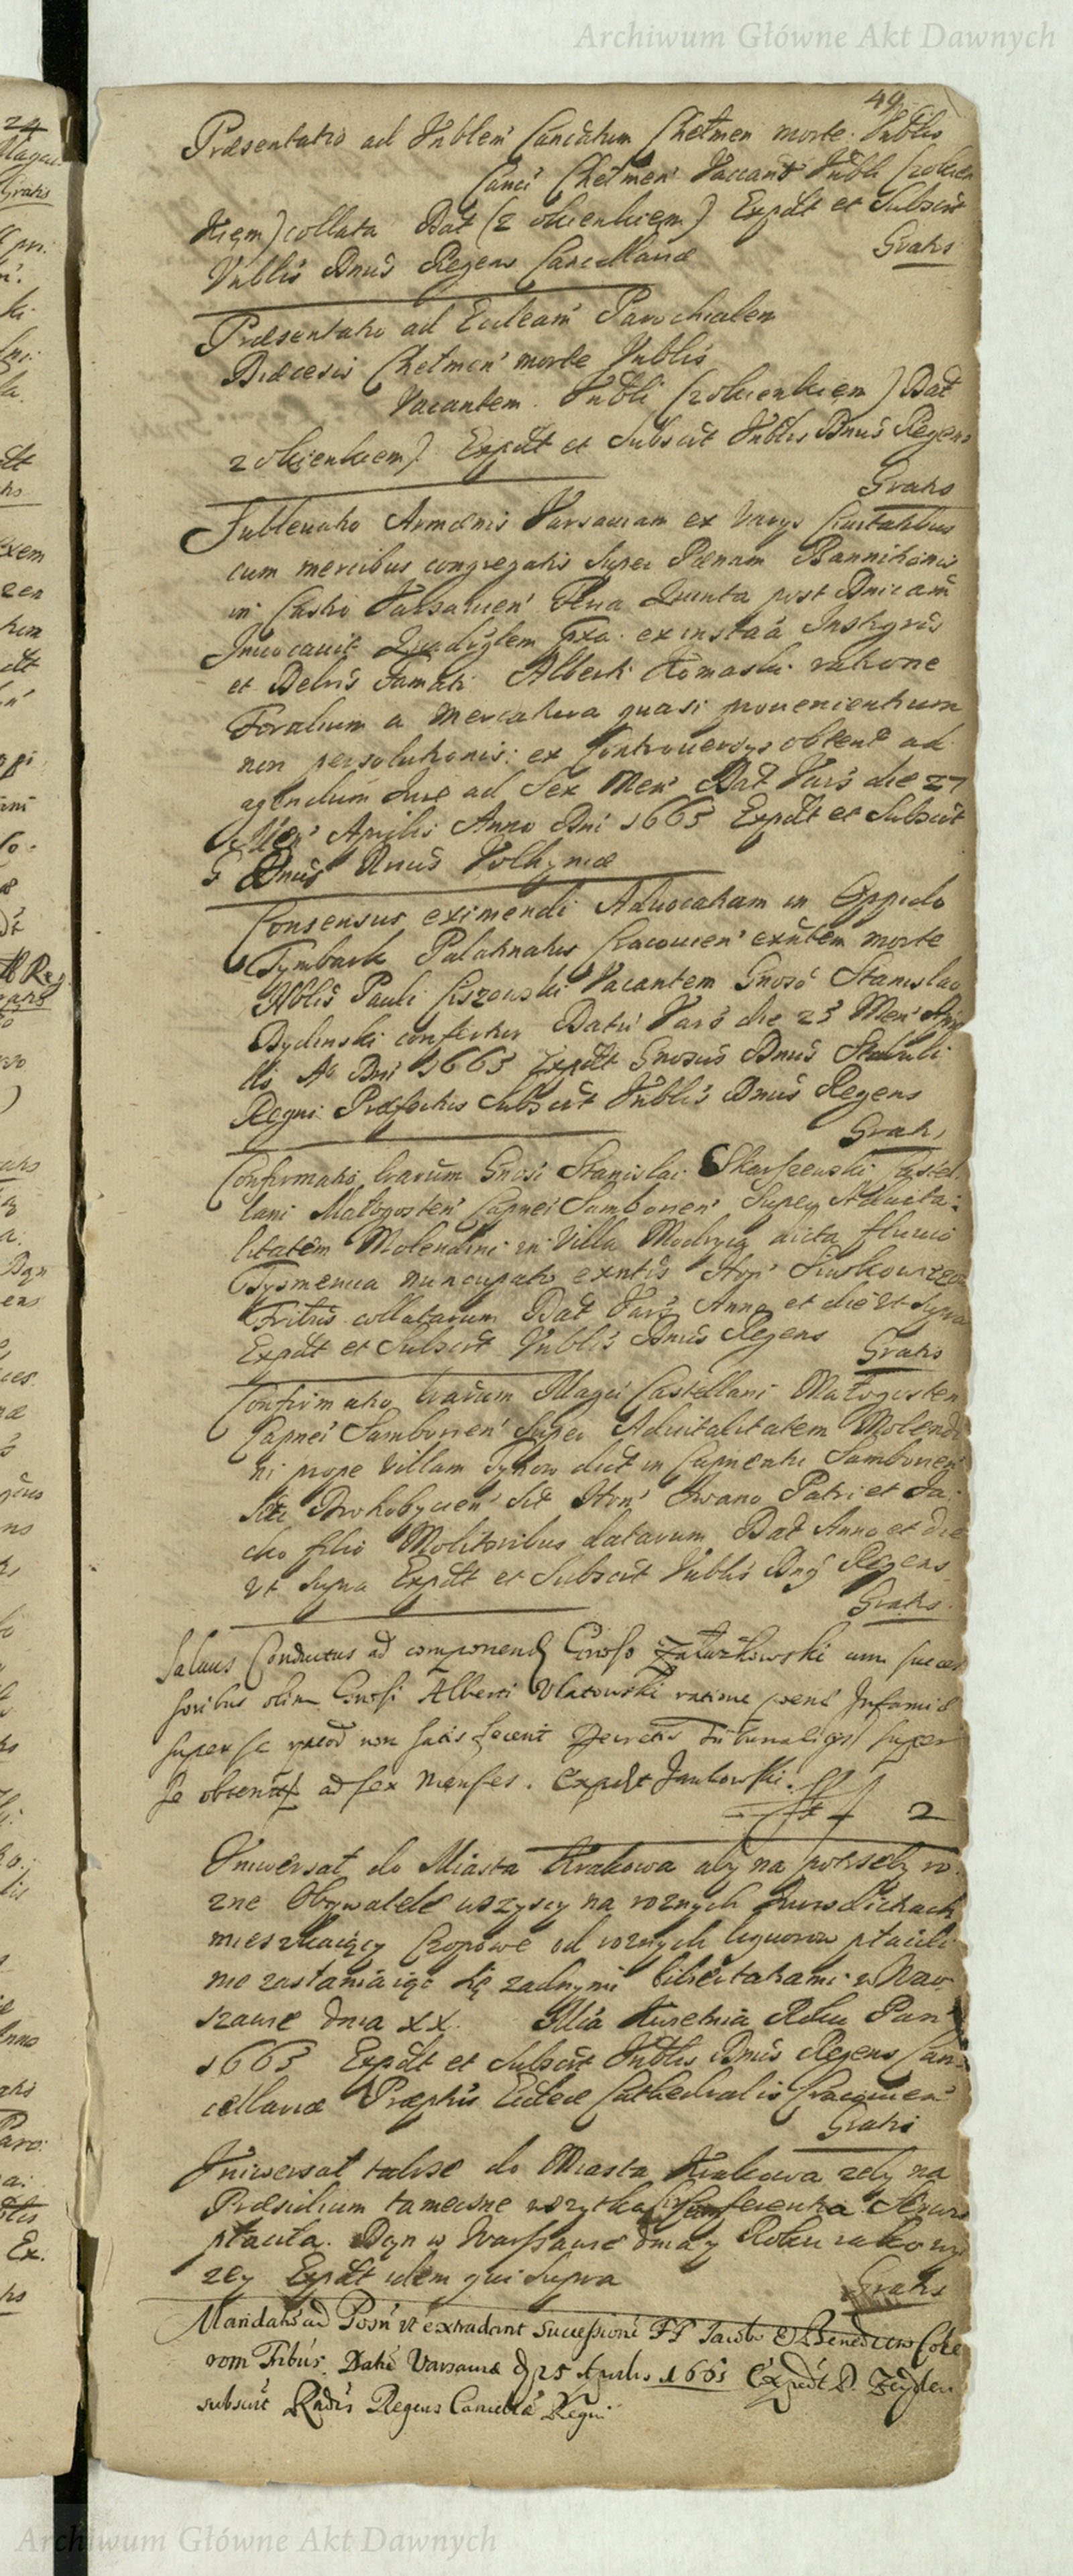 Archiwum Główne Akt Dawnych
49
Præsentatio ad Vnblem Cancatum Chełmen morte Vnblis
Canci Chełmen Vacant Vnbli (zokien
kiem) collata Dat (z okienkiem) Expdt et Subscit
Vnblis Dnus Regens Cancellariæ Gratis
Præsentatio ad Eccleam Parochialem
Diæcesis Chełmen morte Vnblis
Vacantem Vnbli (zokienkiem) Dat
zokienkiem) Expdt et Subscit Vnblis Dnus Regens
Gratis
Subleuatio Armænis Varsauiam ex varys Ciuitatibus
cum mercibus congregatis super Pænam Bannitionis
in Castro Varsauien feria Quinta post Dnicam
Inuocauit Quadraglem pxa ex instaa Instgris
et Delris famati Alberti Romaski ratione
Foralium a mercatura quasi prouenientium
non persolutionis ex Controuersys obtent ad
agendum Jure ad Sex Men Dat Vars die 27
Men Aprilis Anno Dni 1665 Expdt et Subscit
G Dnus Rnus Volhyniæ
Consensus eximendi Aduocatiam in Oppido
Tymbark Palatinatus Cracouien exntem morte
Nblis Pauli Liszowski Vacantem Gnoso Stanislao
Bydenski confertur Datu Vars die 23 Men Apri
lis Ao Dni 1665 Expdt Gnosus Dnus Stabuli
Regni Præfectus Subscit Vnblis Dnus Regens
Gratis
Confirmatio lrarum Gnosi Stanislai Skarszewski Castel
lani Małogosten Capnei Samborien Super Aduita
litatem Molendini in Villa Modrycz dicta fluuio
Tysmenica nuncupato exntis Hon
Fribus collatarum Dat Vars Anno et die Vt Supra
Expdt et Subscit Vnblis Dnus Regens Gratis
Confirmatio lrarum Magci Castellani Małogosten
Capnei Samborien Super Aduitalitatem Molendi
ni prope Villam Tynow dict in Capneatu Samborien
Drohobycien Sit Hon Iwano Patri et Ja
cko filio Molitoribus datarum Dat Anno et die
vt Supra Expdt et Subscit Vnblis Dnus Regens
Gratis
Saluus Conductus ad componend Gnoso Załuzkowski cum succes
soribus olim Gnosi Alberti Vlatowski ratione pæne Infamiæ
super se quod non satis fecerit Decretis Tribunalis super
se obtent ad sex menses. Expdt Jankowski.
ff 2
Vniwersał do Miasta Krakowa aby na potrzeby ro
zne Obywatele wszyscy na roznych Iurisdickach
mieszkaiący Czopowe od roznych liquorow płacili
nie zasłaniaiąc się zadnymi libertatami w War
szawie dnia XX Mca Kwietnia Roku Pan
1665 Expdt et Subscit Vnblis Dnus Regens Can
cellariæ Præptus Eccleæ Cathedralis Cracouien
Gratis
Vniwersał takze do Miasta Krakowa zeby na
Præsidium tameczne wszytka
płaciła. Dan w Warszawie dnia y Roku iako wy
zey Expdt idem qui supra Gratis
Mandatu ad Posn vt extradant successione FF Iacobo & Benedicto
rom Fribus. Datu Varsauiæ d 25 Aprilis 1665 Expedt D.
subscrit Rndus Regens Cancella Regni
Archiwum Główne Akt Dawnych